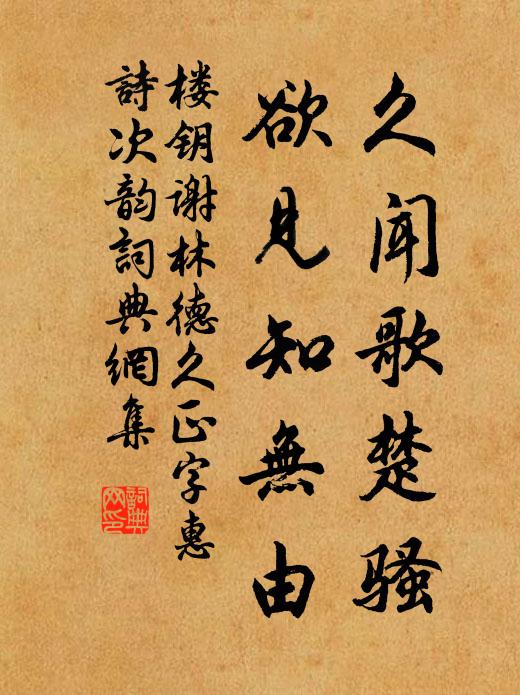 久闻歌楚骚
欲见知無由
楼钥谢林德久正字惠
詩次韵詞典網集
詞典
网印